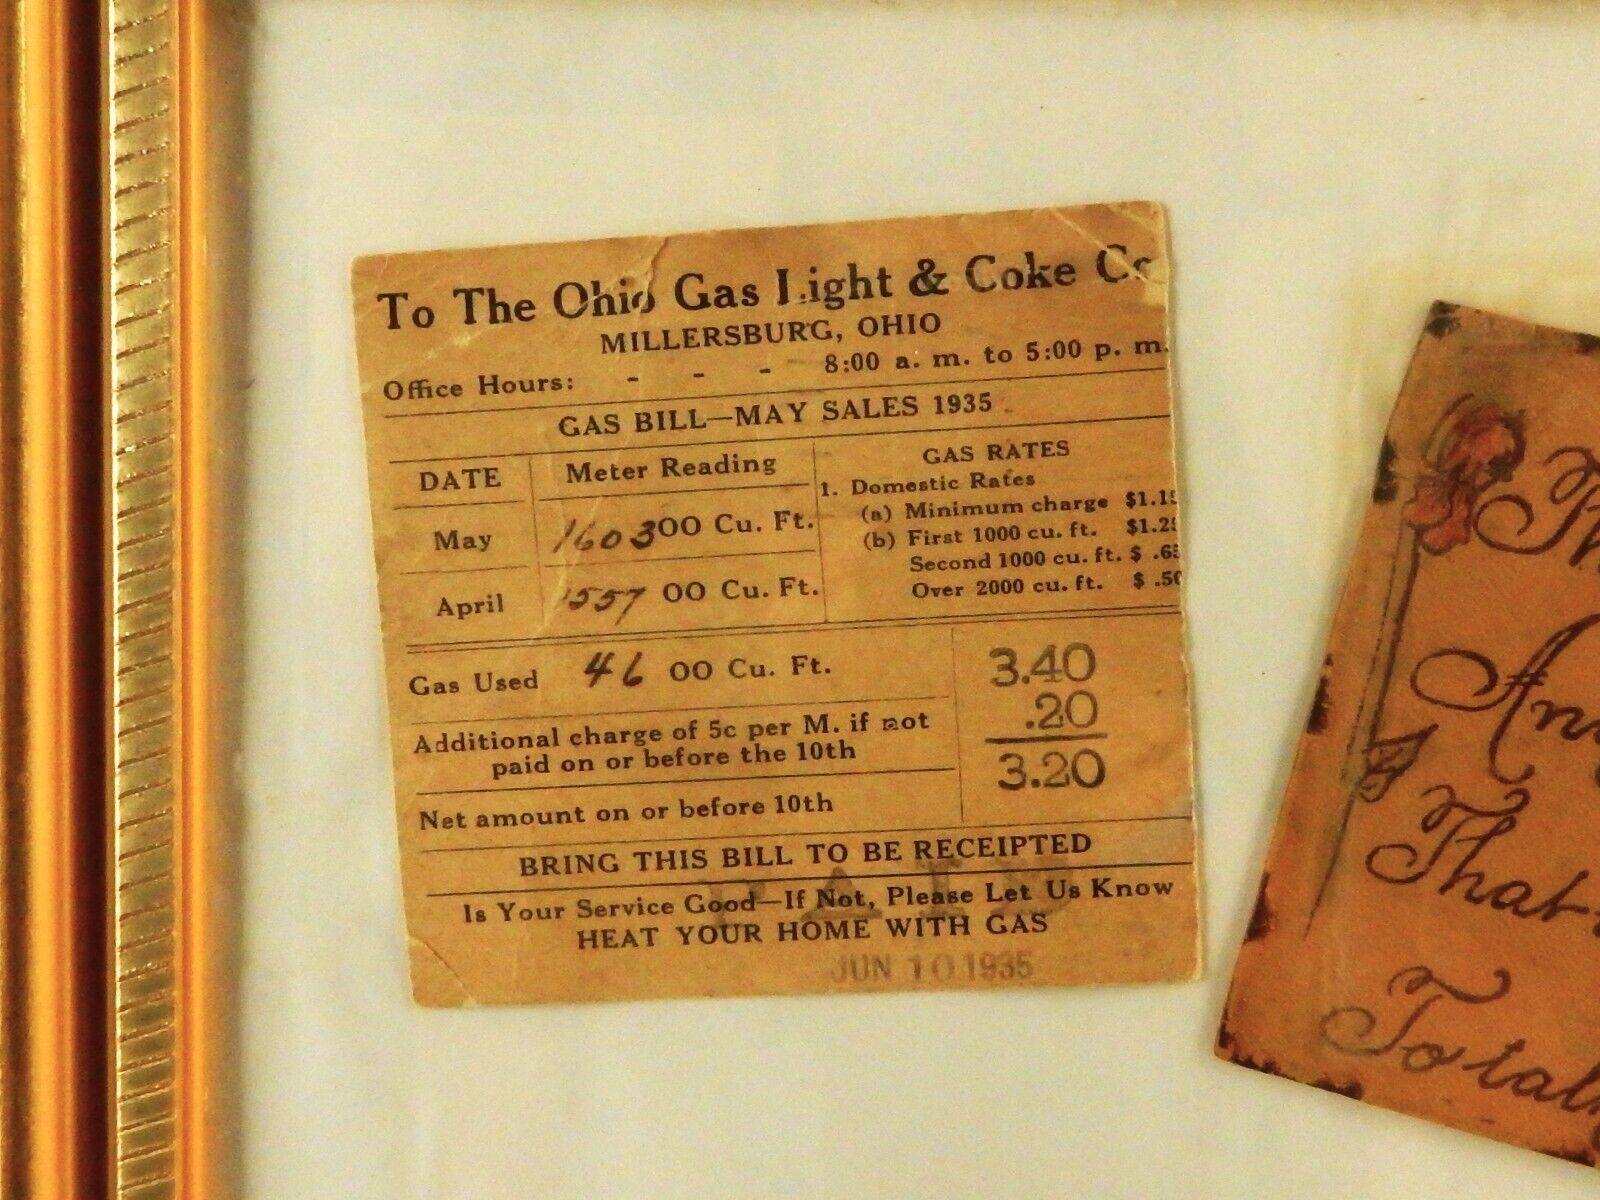 To The Ohio Gas Light & Coke Co
MILLERSBURG, OHIO
Office Hours: - - - 8:00 a. m. to 5:00 p. m.
GAS BILL—MAY SALES 1935
DATE Meter Reading
May 160300 Cu. Ft.
April 1557 00 Cu. Ft.
GAS RATES
1. Domestic Rates
(a) Minimum charge $1.15
(b) First 1000 cu. ft. $1.25
Second 1000 cu. ft. $ .65
Over 2000 cu. ft. $ .50
Gas Used 46 00 Cu. Ft. 3.40
Additional charge of 5c per M. if not .20
paid on or before the 10th
Net amount on or before 10th 3.20
BRING THIS BILL TO BE RECEIPTED
PAID
Is Your Service Good—If Not, Please Let Us Know
HEAT YOUR HOME WITH GAS
JUN 10 1935
That